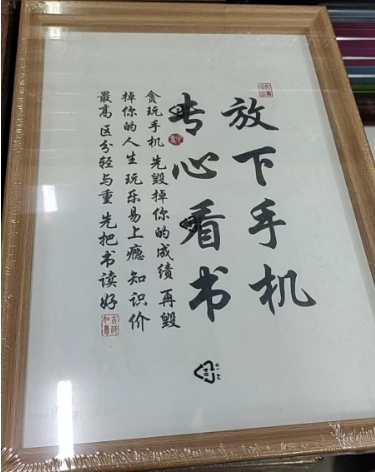 放下手机
专心看书
贪玩手机 先毁掉你的成绩 再毁
掉你的人生 玩乐易上瘾 知识价
最高 区分轻与重 先把书读好